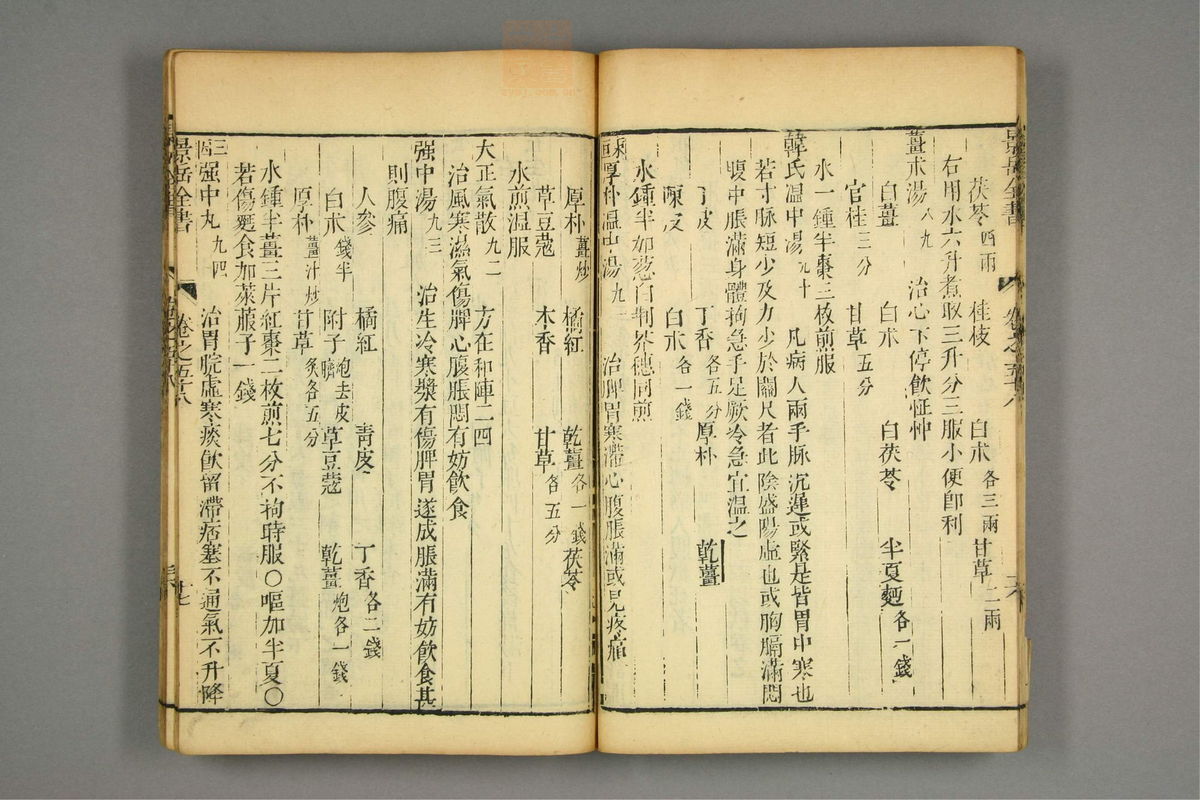 景岳全書 卷之五十八
茯苓四兩 桂枝 白朮各三兩 甘草二兩
右用水六升煮取三升分三服小便即利
薑朮湯八九 治心下停飲怔忡
白薑 白朮 白茯苓 半夏麯各一錢
官桂三分 甘草五分
水一鍾半棗三枚煎服
韓氏溫中湯九十 凡病人兩手脉沉遲或緊是皆胃中寒也
若寸脉短少及力少於關尺者此陰盛陽虛也或胸膈滿悶
腹中脹滿身體拘急手足厥冷急宜溫之
丁皮 丁香各五分 厚朴 乾薑
陳皮 白朮各一錢
水鍾半加葱白荆芥穗同煎
厚朴溫中湯九一 治脾胃寒滯心腹脹滿或見疼痛
厚朴薑炒 橘紅 乾薑各一錢 茯苓
草豆蔻 木香 甘草各五分
水煎溫服
大正氣散九二 方在和陣二四
治風寒濕氣傷脾心腹脹悶有妨飲食
強中湯九三 治生冷寒漿有傷脾胃遂成脹滿有妨飲食甚
則腹痛
人參 橘紅 青皮 丁香各二錢
白朮錢半 附子炮去皮臍 草豆蔻 乾薑炮各一錢
厚朴薑汁炒 甘草炙各五分
水鍾半薑三片紅棗二枚煎七分不拘時服○嘔加半夏○
若傷麵食加萊菔子一錢
强中丸九四 治胃脘虛寒痰飲留滯痞塞不通氣不升降
景岳全書 卷之五十八